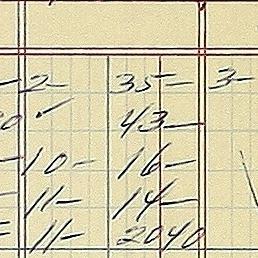 2- 35- 3-
0 ✓ 43-
10- 16-
11- 14-
11- 2040